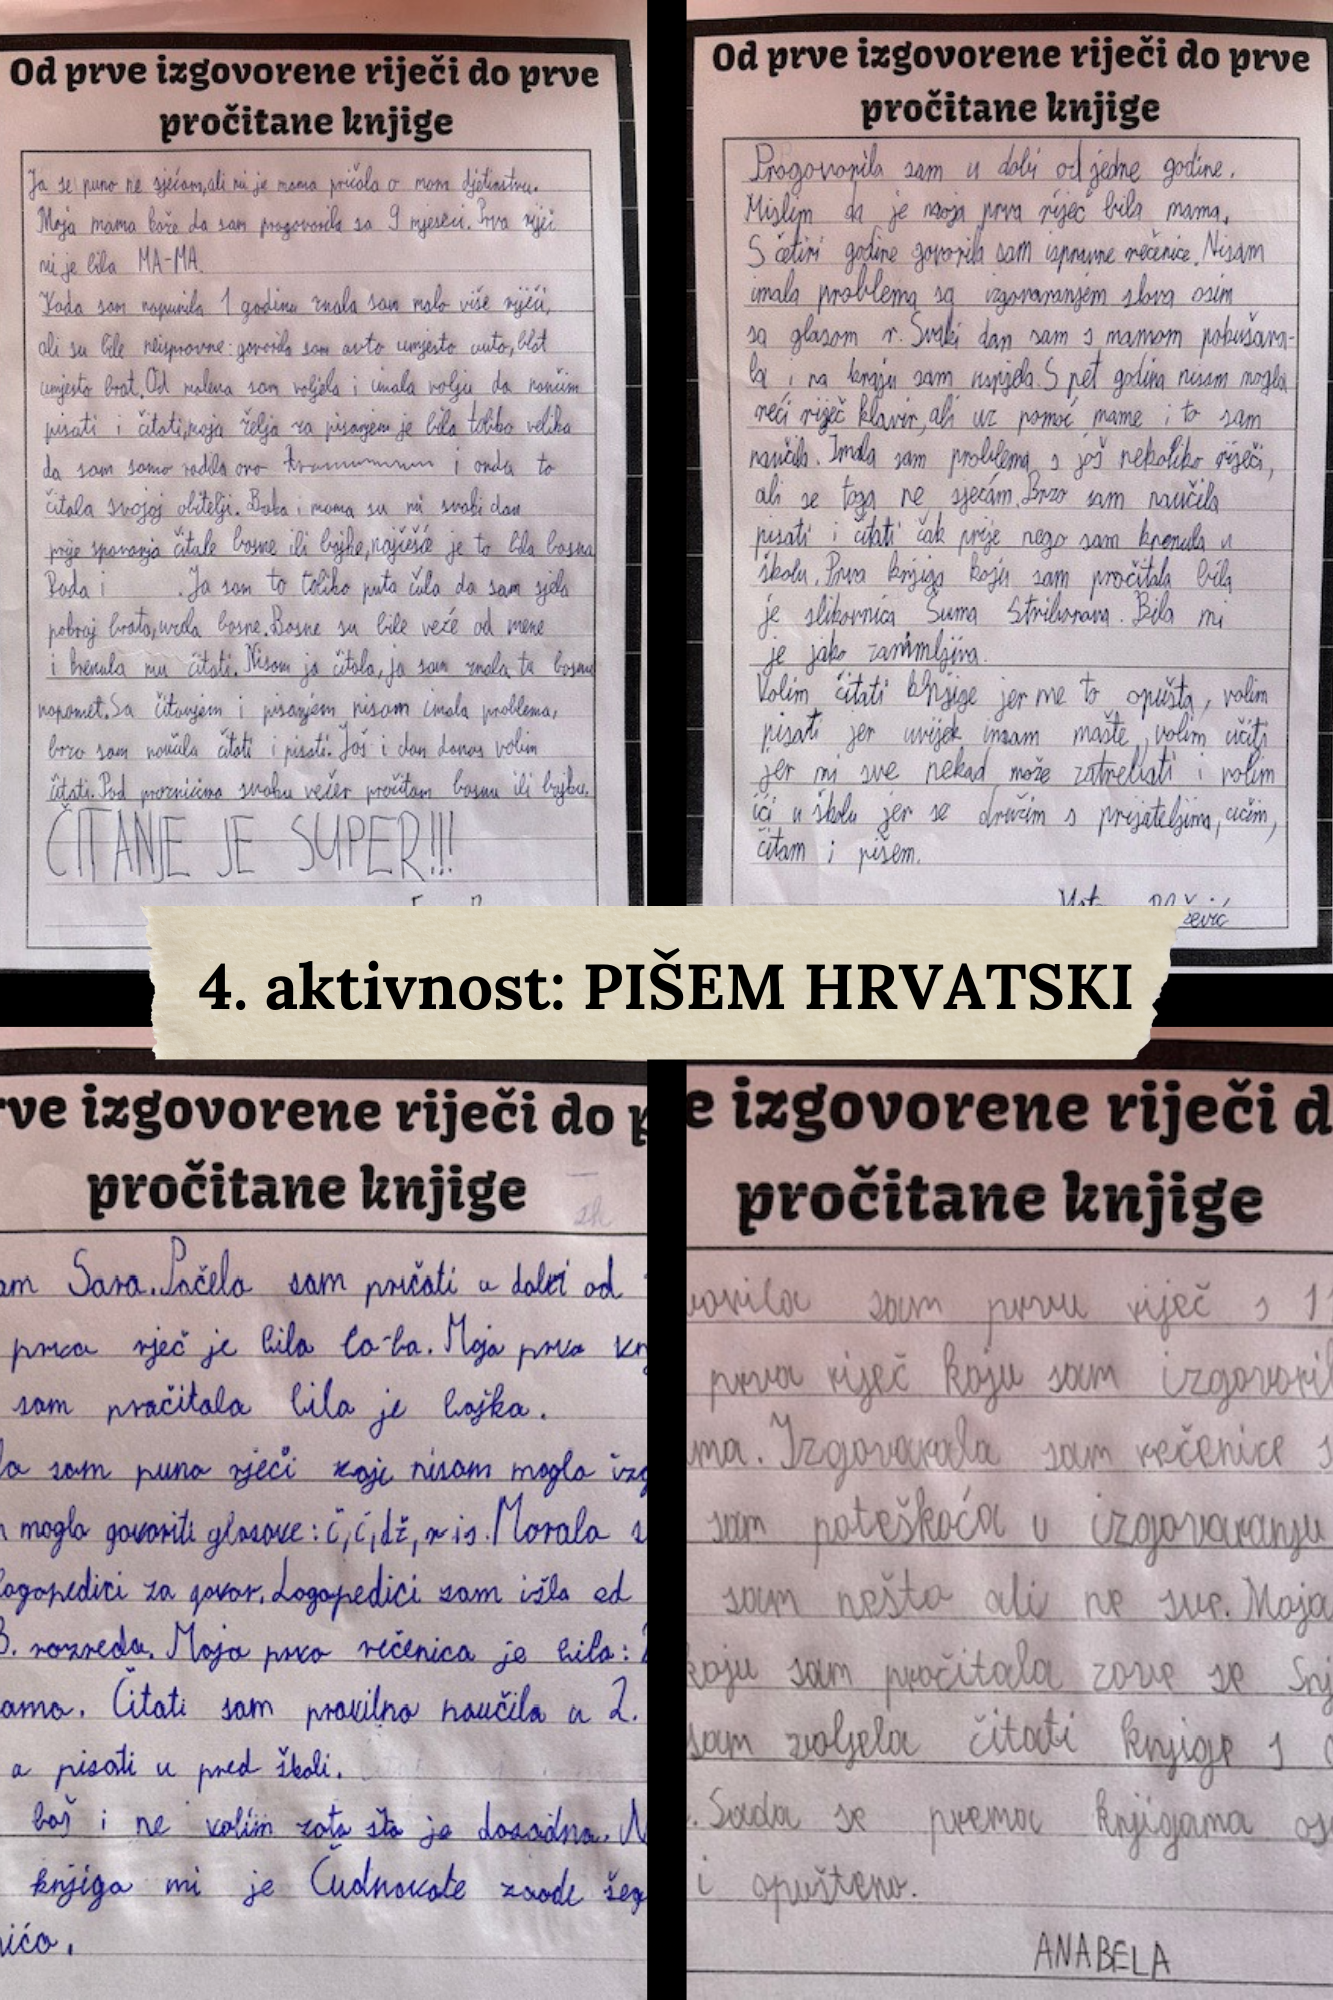 Od prve izgovorene riječi do prve
pročitane knjige
Ja se puno ne sjećam, ali mi je mama pričala o mom djetinstvu.
Moja mama kaže da sam progovorila sa 9 mjeseci. Prva riječ
mi je bila MA-MA.
Kada sam napunila 1 godinu znala sam malo više riječi,
ali su bile neispravne: govorila sam avto umjesto auto, blat
umjesto brat. Od malena sam voljela i imala volju da naučim
pisati i čitati, moja želja za pisanjem je bila toliko velika
da sam samo radila ovo i onda to
čitala svojoj obitelji. Baka i mama su mi svaki dan
prije spavanja čitale basne ili bajke, najčešće je to bila basna
Roda i . Ja sam to toliko puta čula da sam sjela
pokraj brata, uzela basne. Basne su bile veće od mene
i krenula mu čitati. Nisam ja čitala, ja sam znala tu basnu
napamet. Sa čitanjem i pisanjem nisam imala problema,
brzo sam naučila čitati i pisati. Još i dan danas volim
čitati. Pod praznicima svaku večer pročitam basnu ili bajku.
ČITANJE JE SUPER!!!
Od prve izgovorene riječi do prve
pročitane knjige
Progovorila sam u dobi od jedne godine.
Mislim da je moja prva riječ bila mama.
S četiri godine govorila sam ispravne rečenice. Nisam
imala problema sa izgovaranjem slova osim
sa glasom r. Svaki dan sam s mamom pokušava-
la i na kraju sam uspjela. S pet godina nisam mogla
reći riječ klavir, ali uz pomoć mame i to sam
naučila. Imala sam problema s još nekoliko riječi,
ali se toga ne sjećam. Brzo sam naučila
pisati i čitati čak prije nego sam krenula u
školu. Prva knjiga koju sam pročitala bila
je slikovnica Šuma Striborova. Bila mi
je jako zanimljiva.
Volim čitati knjige jer me to opušta, volim
pisati jer uvijek imam mašte, volim učiti
jer mi sve nekad može zatrebati i volim
ići u školu jer se družim s prijateljima, učim,
čitam i pišem.
4. aktivnost: PIŠEM HRVATSKI
rve izgovorene riječi do p
pročitane knjige
am Sara. Počela sam pričati u dobi od
prva rječ je bila ba-ba. Moja prva kn
sam pračitala bila je bajka.
la sam puno rječi koje nisam mogla izg
m mogla govoriti glasove: č, ć, dž, r i s. Morala s
logopedici za govor. Logopedici sam išla od
3. razreda. Moja prva rečenica je bila:
ama. Čitati sam pravilno naučila u 2.
a pisati u pred školi.
baš i ne volim zato što je dosadno. N
knjiga mi je Čudnovate zgode šeg
nića.
e izgovorene riječi d
pročitane knjige
vorila sam prvu riječ s 1
prva riječ koju sam izgovoril
ma. Izgovarala sam rečenice s
sam poteškoća u izgovaranju
sam nešto ali ne sve. Moja
koju sam pročitala zove se Snj
sam voljela čitati knjige s
. Sada se prema knjigama os
i opušteno.
ANABELA